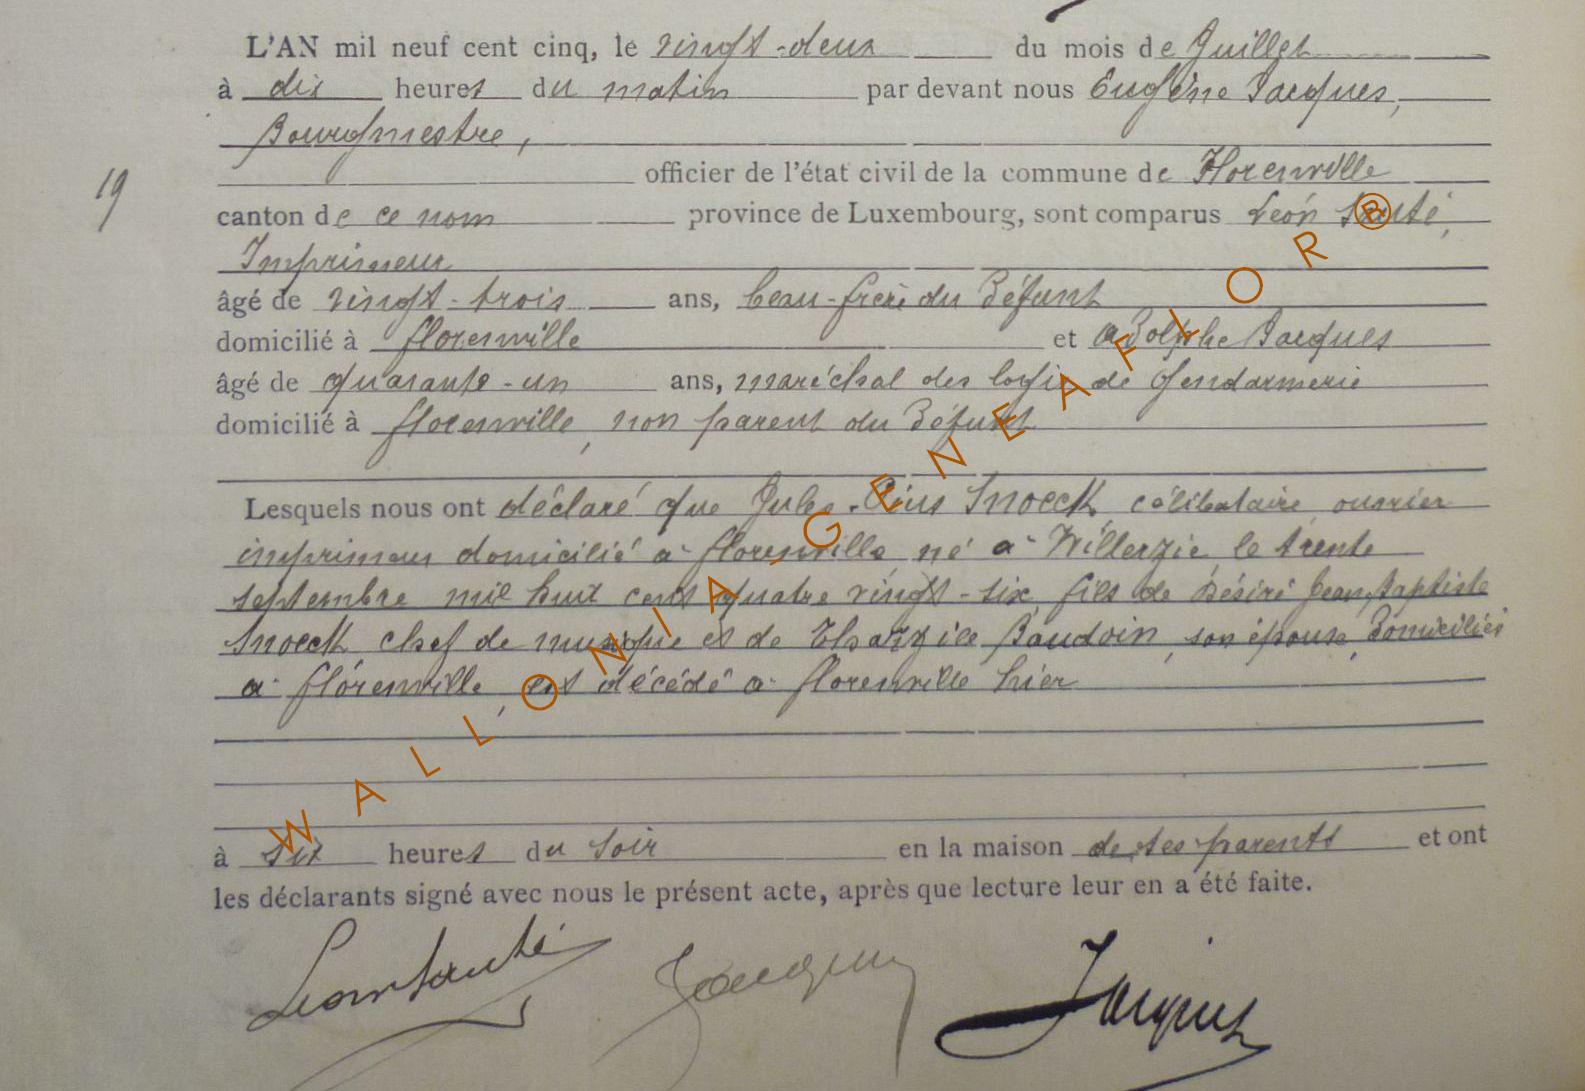 L'AN mil neuf cent cinq, le vingt-deux du mois de Juillet
à dix heures du matin par devant nous Eugène Jacques,
Bourgmestre,
officier de l'état civil de la commune de Florenville
19
canton de ce nom province de Luxembourg, sont comparus Léon Santé,
Imprimeur
âgé de vingt-trois ans, beau-frère du défunt
domicilié à Florenville et Adolphe Jacques
âgé de quarante-un ans, maréchal des logis de gendarmerie
domicilié à Florenville, non parent du défunt
Lesquels nous ont déclaré que Jules-Pius Snoeck célibataire, ouvrier
imprimeur domicilié à Florenville, né à Willerzie le trente
septembre mil huit cent quatre vingt-six, fils de Désiré Jean, Baptiste
Snoeck chef de musique et de Tharzile Baudoin, son épouse, domiciliés
à Florenville, est décédé à Florenville hier
à six heures du soir en la maison de ses parents et ont
les déclarants signé avec nous le présent acte, après que lecture leur en a été faite.
Leon Santé Jacques Jacques
WALLONIA-GENEAFLOR®